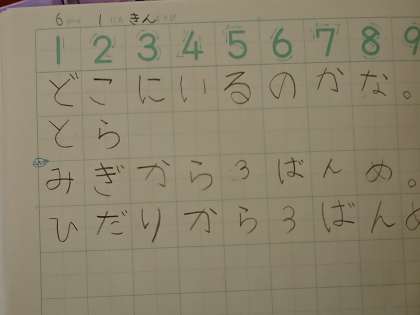 6 1 きん
1 2 3 4 5 6 7 8 9
どこにいるのかな。
とら
みぎから3ばんめ。
ひだりから3ばんめ